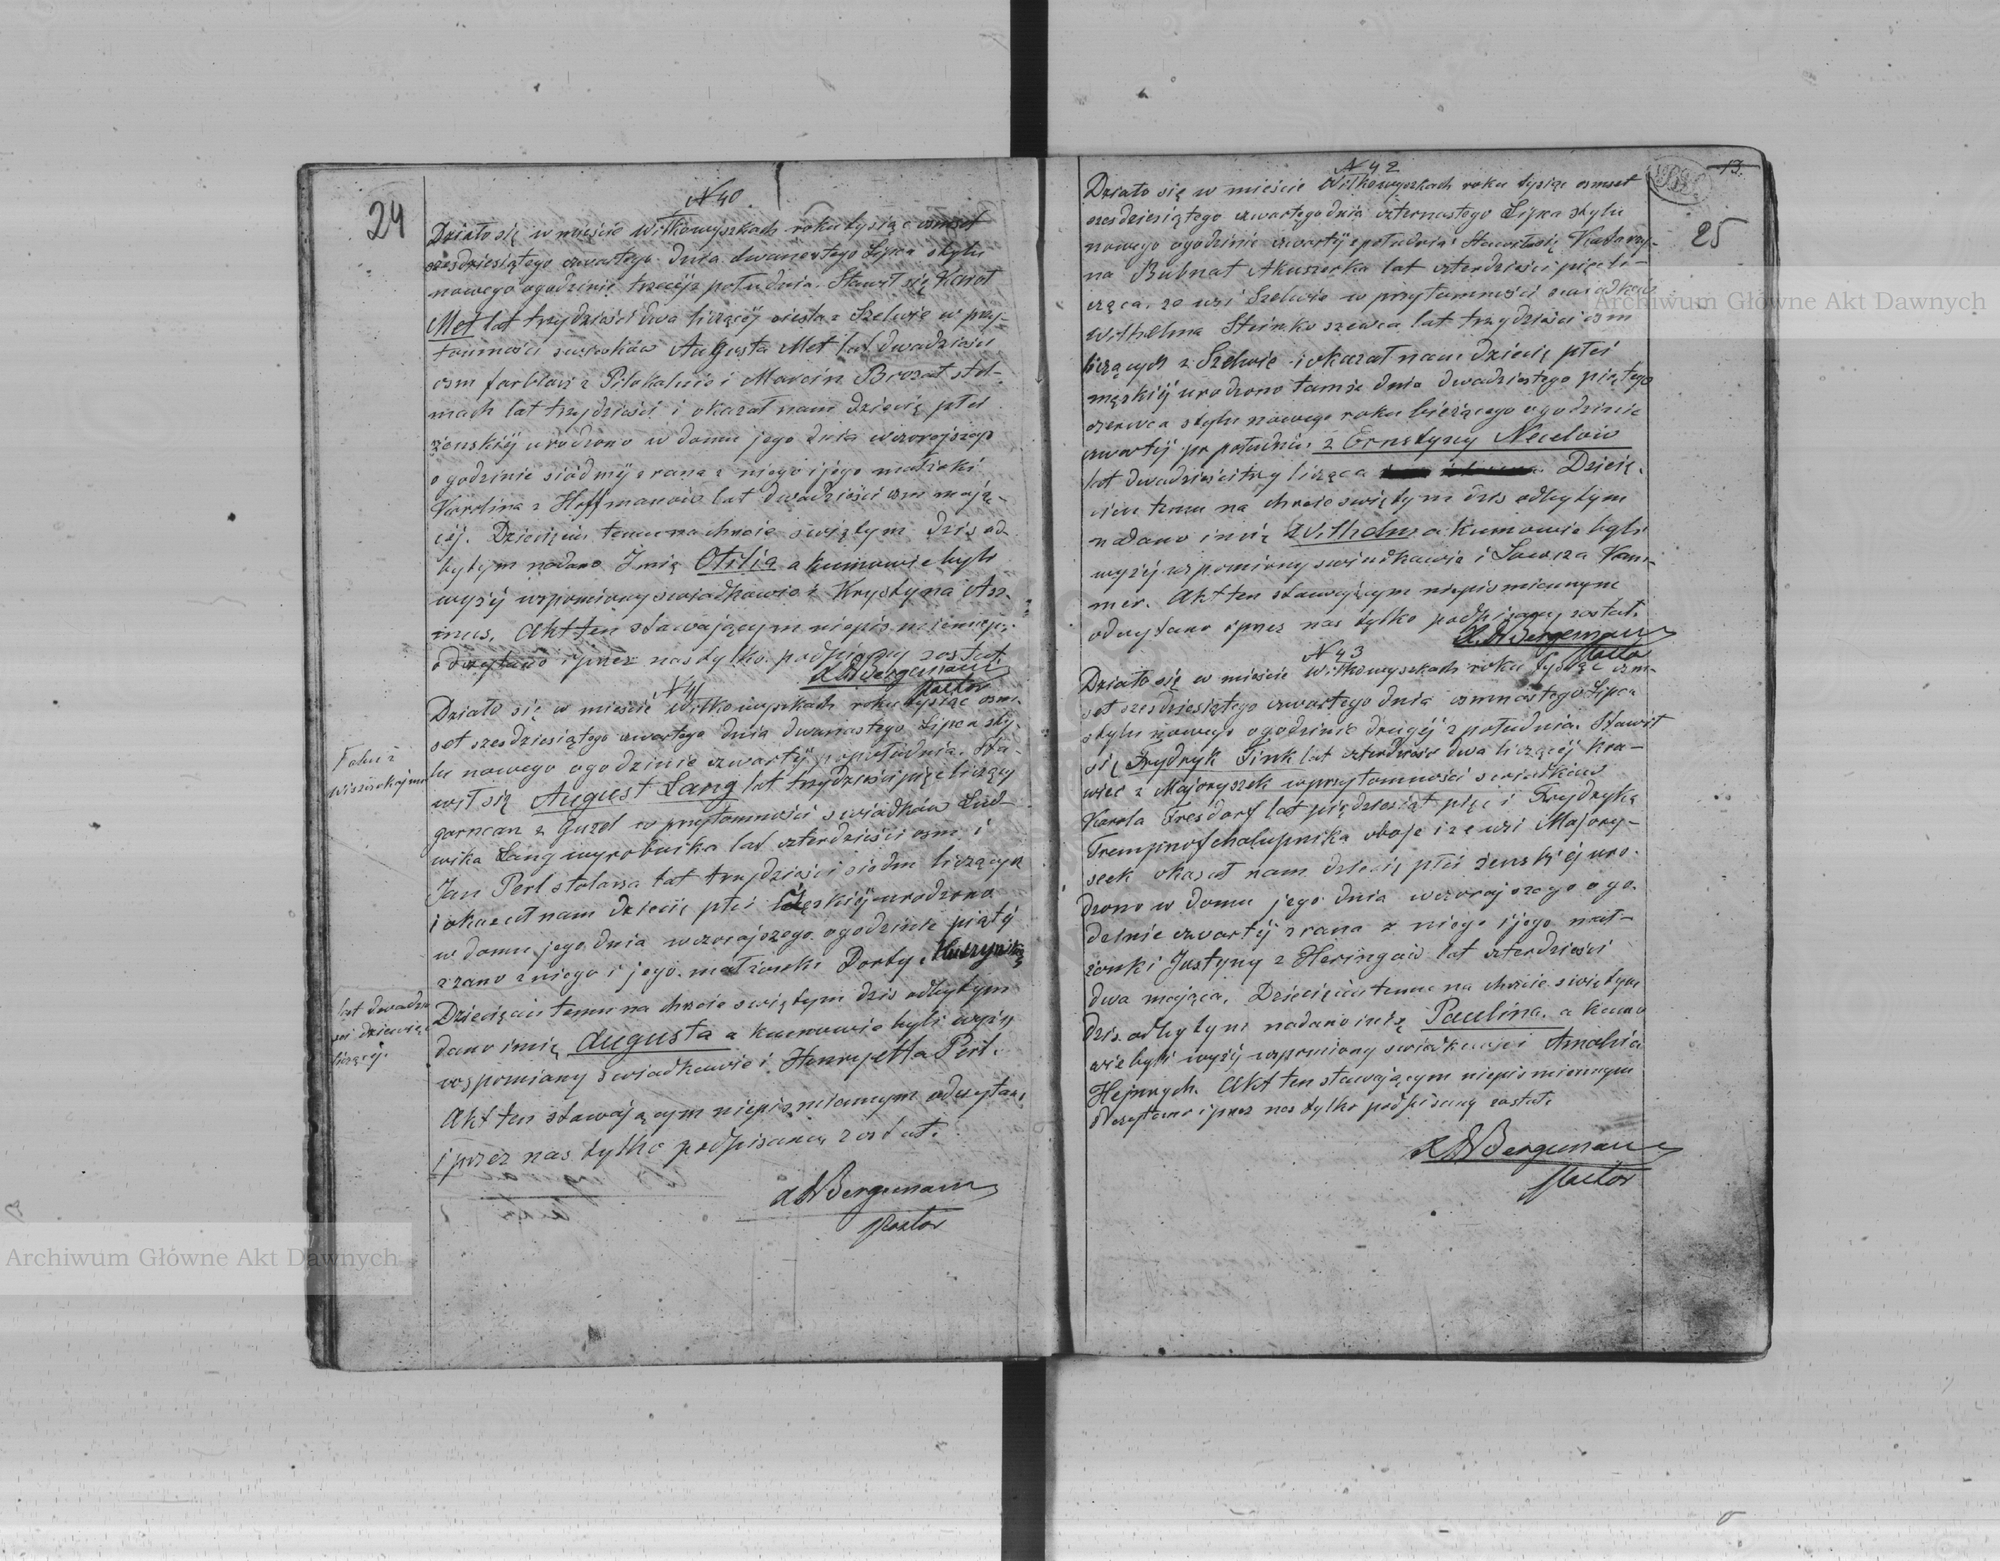 24
N 40.
Działo się w mieście Wiłkowyszkach roku tysiąc osmset
szesdziesiątego czwartego dnia dwunastego Lipca stylu
nowego ogodzinie trzeciej z południa. Stawił się Karol
Met lat trzydzieści dwa liczący z Szelwie w przy-
tomności swiadków Augusta Met lat dwadzieścia
osm farbiarz z Piłokalnie i Marcin Brozat stel-
mach lat trzydzieści i okazał nam dziecię płci
żenskiij urodzono w domu jego dnia wczorajszego
o godzinie siódmij z rana z niego i jego małżonki
Karolina z Hoffmanów lat dwadzieścia osm mają-
cej. Dziecięciu temu na chrcie swiętym dzis od
bytym nadano Imię Otilia a kumowie byli
wyżij wspomiony swiadkowie i Krystyna Asz-
mus. Akt ten stawającym niepismiennym
odczytano i przez nas tylko podpisany został
A W Bergemann
Pastor
N 41
Działo się w mieście Wiłkowyszkach roku tysiąc osm-
set szesdziesiątego czwartego dnia dwunastego Lipca sty-
lu nowego ogodzinie czwartij popołudniu. Sta-
wił się August Lang lat trzydzieści pięc liczący
garncarz z w przytomności swiadków Lud-
wika Lang wyrobnika lat czterdzieści osm i
Jan Perl stolarza lat trzydzieści siedm liczących
i okazał nam dziecię płci urodzono
w domu jego dnia wczorajszego ogodzinie piątij
z rano z niego i jego małżonki Dorty
Dziecięciu temu na chrcie swiętym dzis odbytym
dano imię Augusta a kumowie byli wyżij
wspomiany swiadkowie i Henryjetta Perl.
Akt ten stawającym niepismiennym odczytano
i przez nas tylko podpisany został.
A W Bergemann
Pastor
lat dwadzie
sci dziewięć
liczącej.
N 42
13.
25
Działo się w mieście Wiłkowyszkach roku tysiąc osmset
szesdziesiątego czwartego dnia czternastego Lipca stylu
nowego ogodzinie czwartij z południa Stawiła się Katarzy-
na Bubnat Akuszerka lat czterdzieści pięc li-
cząca, ze wsi Szelwie w przytomności swiadków
Wilhelma Steinke szewca lat trzydzieści osm
liczących z Szelwie i okazał nam dziecię płci
męskiij urodzono tamże dnia dwadziestego piątego
czerwca stylu nowego roku bieżącego ogodzinie
czwartij po południu z Ernstyny Neclow
lat dwadzieścitrzy licząca Dzieię-
ciu temu na chrcie swiętym dzis odbytym
nadano imię Wilhelm a kumowie byli
wyżij wspomiony swiadkowie i Lowiza Kam-
mer. Akt ten stawającym niepismiennym
odczytano i przez nas tylko podpisany został.
A W Bergemann
Pastor
N 43
Działo się w mieście Wiłkowyszkach roku tysiąc osm-
set szesdziesiątego czwartego dnia osmnastego Lipca
stylu nowego ogodzinie drugij z południa. Stawił
się Frydryk Fink lat czterdzieści dwa liczący kra-
wiec z Majoryszek w przytomności swiadków
Karola Fresdorf lat pięćdziesiąt pięc i Frydryka
Trempnof chałupnika oboje i ze wsi Majory-
szek okazał nam dziecię płci żenskiej uro-
dzono w domu jego dnia wczorajszego ogo-
dzinie czwartij z rana z niego i jego mał-
żonki Justyny z Heringow lat czterdzieści
dwa mająca. Dziecięciu temu na chrcie swiętym
dzis odbytym nadano imię Paulina. a kumo
wie byli wyżij wspomiony swiadkowie i Amalia
Hejnrych. Akt ten stawającym niepismiennym
odczytano i przez nas tylko podpisany został.
A W Bergemann
Pastor
Archiwum Główne Akt Dawnych
Archiwum Główne Akt Dawnych